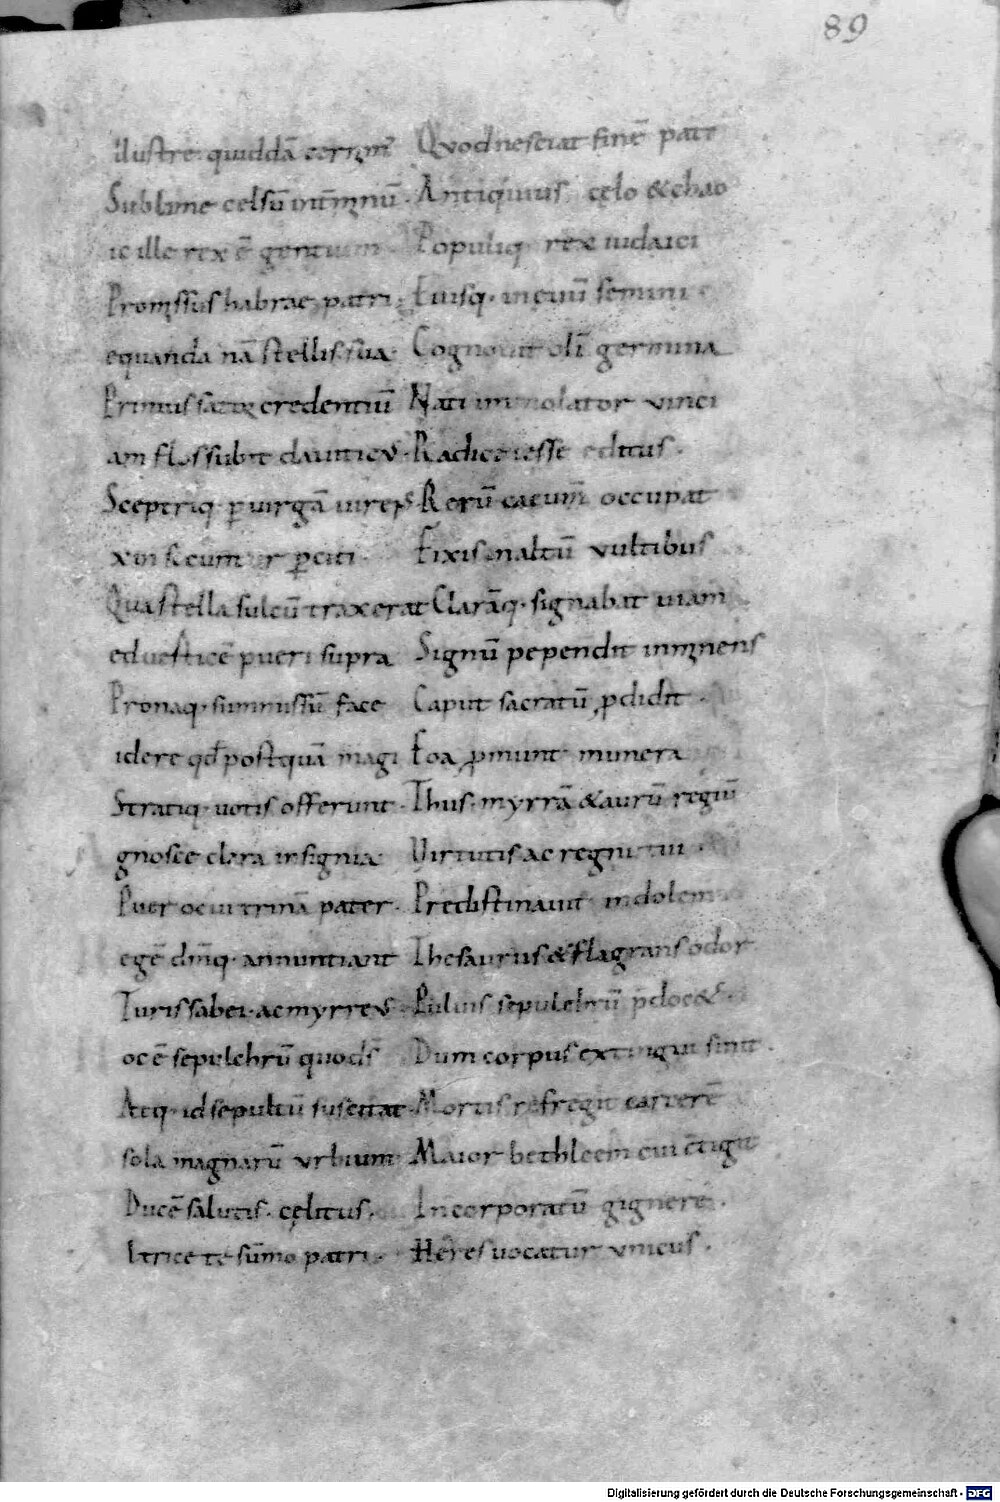 89
illustre quiddā cernim᷒ Quod nesciat finē pati
Sublime celsū intm̄inū. Antiquius celo & chao
ic ille rex ē gentium Populiq· rex iudaici
Promissus habrae patri Eiusq· in euū semini
equanda nā stellis sua Cognouit oli germina
Primus sator credentiū Nati immolator vnici
am flos subit dauiticus Radice iesse editus.
Sceptriq· p uirgā uirens Rerū cacum̄ occupat
xin seeuntur perciti Fixis in altū vultibus
Qua stella sulcū traxerat Clarāq· signabat uiam
ed uerticē pueri supra Signū pependit inminens
Pronaq· summissū face Caput sacratū pdidit.
idere qd postquā magi Eoa pmunt munera
Stratiq· uotis offerunt. Thus· myrrā & aurū regiū
gnosce clara insignia Virtutis ac regni tui
Puer o cui trinā pater. Predestinauit indolem
egē dm̄q· annuntiant Thesaurus & flagrans odor
Turis sabei· ac myrreus Puluis sepulchrū pdocet.
oc ē sepulchrū quo ds̄ Dum corpus extingui sinit.
Atq· id sepultū suscitat Mortis refregit carcerē
sola magnarū vrbium Maior bethleem cui c̄tigit
Ducē salutis· cęlitus. Incorporatū gignere.
ltrice te sūmo patri. Heres uocatur vnicus.
Digitalisierung gefördert durch die Deutsche Forschungsgemeinschaft - DFG